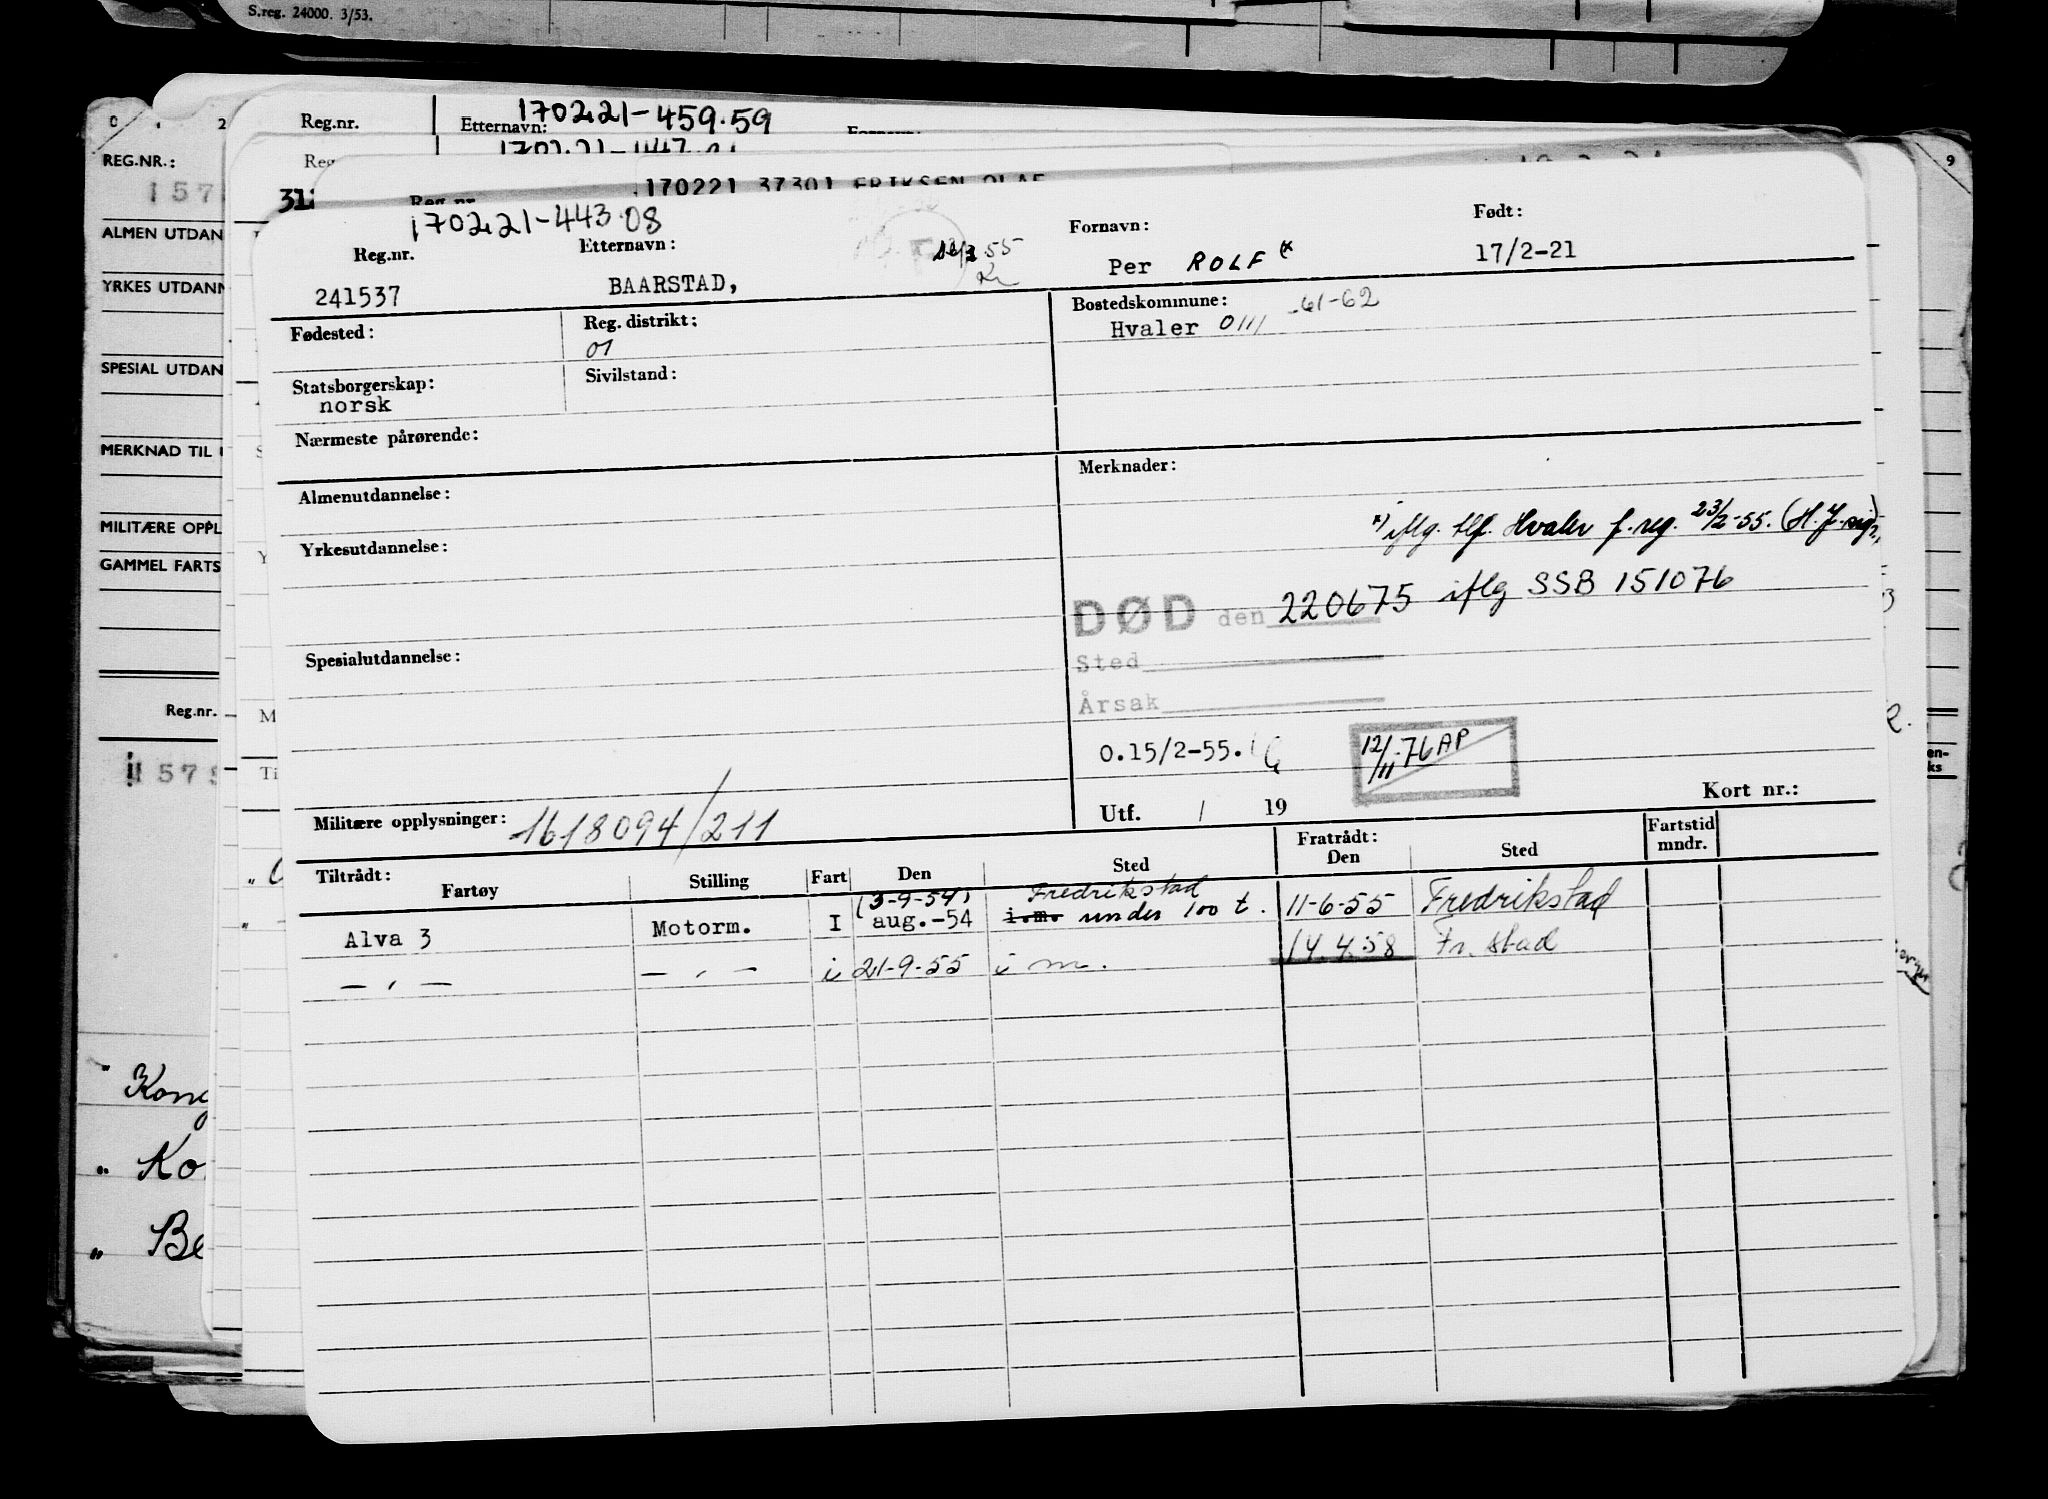 S.reg. 24000. 3/53.
170221-459.59
Reg.nr.
Etternavn:
Fornavn:
REG.NR.:
Reg
157
170221 37301 ERIKSEN OLAF
ALMEN UTDAN
YRKES UTDANN
SPESIAL UTDAN
MERKNAD TIL
MILITÆRE OPPL
GAMMEL FARTS
Reg.nr.
1579
Kong
" Ko
" Be
170221-443.08
Reg.nr. Etternavn: Fornavn: Født:
241537 BAARSTAD, 55 Per ROLF *) 17/2-21
Fødested: Reg. distrikt: Bostedskommune: -61-62
01 Hvaler 0111
Statsborgerskap: Sivilstand:
norsk
Nærmeste pårørende:
Almenutdannelse: Merknader:
*) iflg. tlf. Hvaler f. reg. 23/2-55. (H. J. sign.)
Yrkesutdannelse:
DØD den 220675 iflg SSB 151076
Spesialutdannelse: Sted
Årsak
0.15/2-55. 12/11-76 AP
Utf. / 19 Kort nr.:
Militære opplysninger: 1618094/211
Tiltrådt: Fratrådt: Fartstid mndr.
Fartøy Stilling Fart Den Sted Den Sted
(3-9-54) Fredrikstad
Alva 3 Motorm. I aug.-54 i.m. under 100 t. 11-6-55 Fredrikstad
— " — — " — i 21-9-55 i m. 14.4.58 Fr.stad